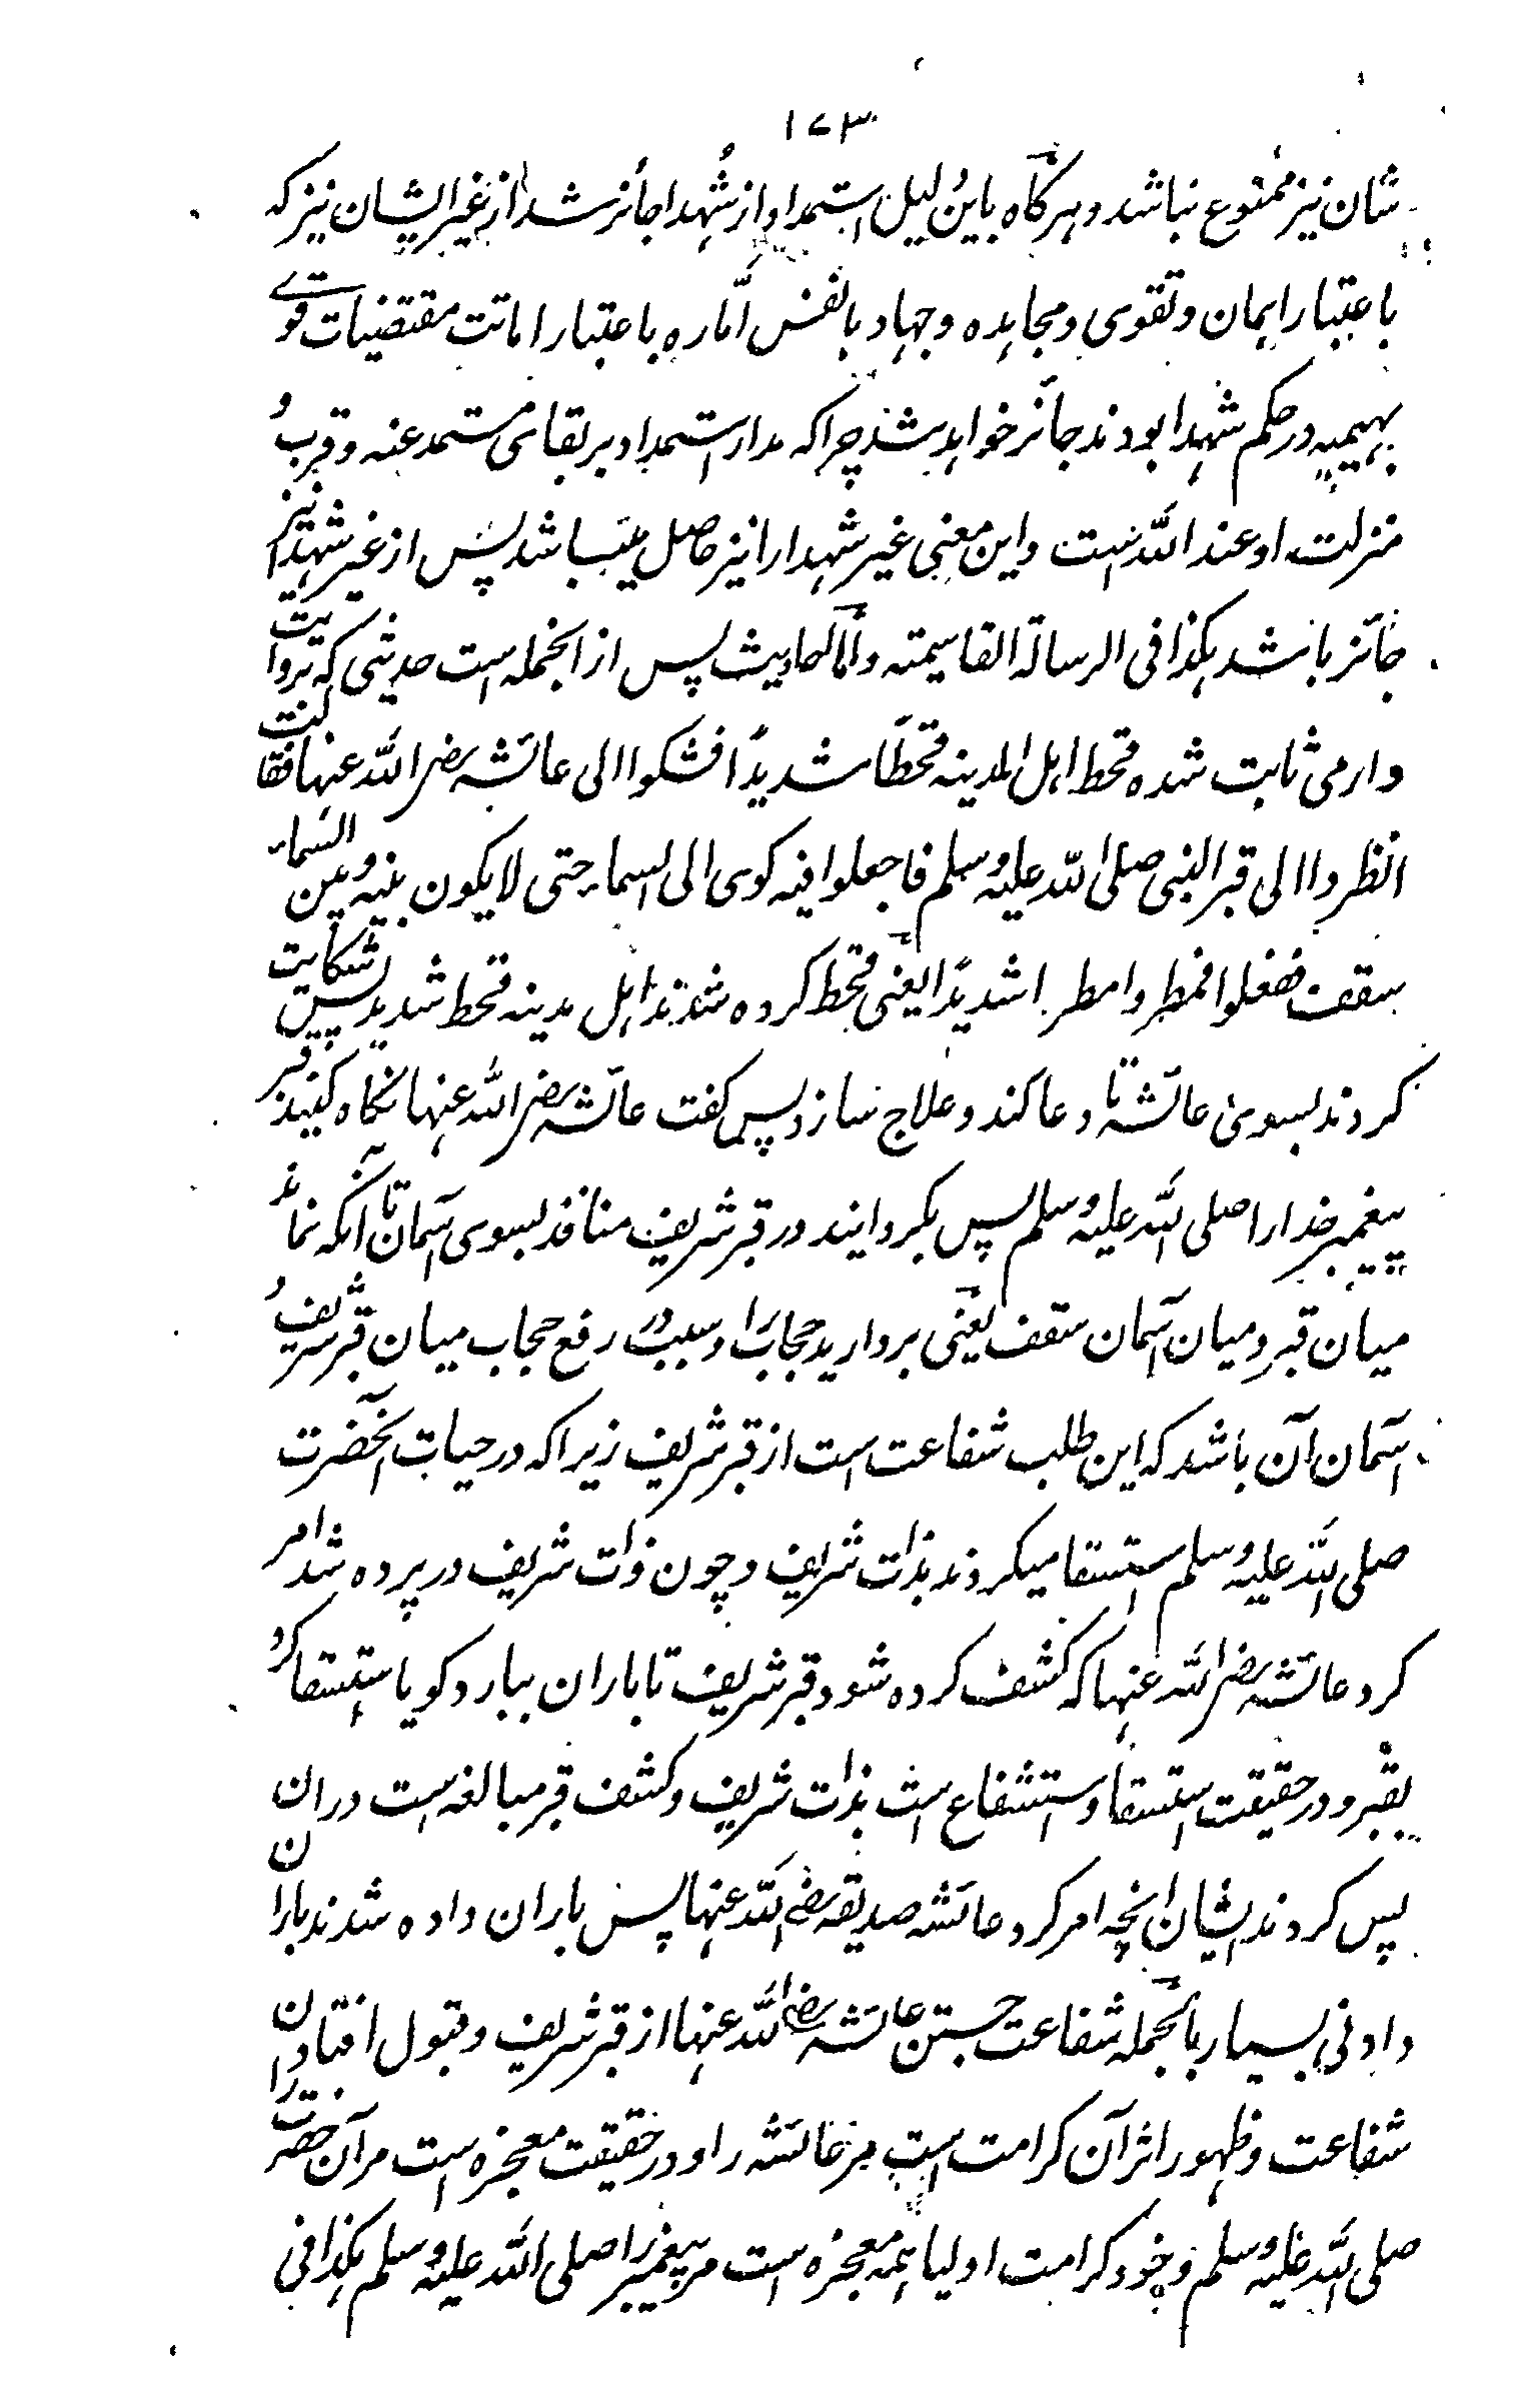 ۱۷۳
شان نیز ممنوع نباشد و ہرگاہ باین دلیل استمداد از شہدا جائز شد از غیر ایشان نیز کہ
باعتبار ایمان و تقوی و مجاہدہ و جہاد با نفس امّارہ باعتبار اماتت مقتضیات قوے
بہیمیہ در حکم شہدا بودند جائز خواہد شد چراکہ مدار استمداد بر بقای مستمد عنہ و قرب و
منزلت او عند اللہ است و این معنی غیر شہدا را نیز حاصل میباشد پس از غیر شہدا نیز
جائز باشد ہکذا فی الرسالۃ القاسیمتہ و اما الاحادیث پس از انجملہ است حدیثی کہ بروایت
دارمی ثابت شدہ قحط اہل المدینہ قحطًا شدیدًا فشکوا الی عائشہ رضی اللہ عنہا فقالت
انظروا الی قبر النبی صلی اللہ علیہ وسلم فاجعلوا فیہ کوی الی السماء حتی لا یکون بینہ و بین السماء
سقف ففعلوا فمطروا مطرا شدیدًا یعنی قحط کردہ شدند اہل مدینہ قحط شدید پس شکایت
کردند بسوی عائشہ تا دعا کند و علاج سازد پس گفت عائشہ رضی اللہ عنہا نگاہ کنید قبر
پیغمبر خدا را صلی اللہ علیہ وسلم پس بگردانید در قبر شریف منافذ بسوی آسمان تا آنکہ نماند
میان قبر و میان آسمان سقف یعنی بردارید حجاب را و سبب در رفع حجاب میان قبر شریف و
آسمان آن باشد کہ این طلب شفاعت است از قبر شریف زیراکہ در حیات آنحضرت
صلی اللہ علیہ وسلم استسقا میکردند بذات شریف و چون ذات شریف در پردہ شد امر
کرد عائشہ رضی اللہ عنہا کہ کشف کردہ شود قبر شریف تا باران ببارد گویا استسقا کرد
بقبر و در حقیقت استسقا و استشفاع است بذات شریف و کشف قبر مبالغہ است در ان
پس کردند ایشان انچہ امر کرد عائشہ صدیقہ رضی اللہ عنہا پس باران دادہ شدند باران
دادنی بسیار بالجملہ شفاعت جستن عائشہ رضی اللہ عنہا از قبر شریف و قبول افتادن ان
شفاعت و ظہور اثر آن کرامت است مر عائشہ را و در حقیقت معجزہ است مر آن حضرت را
صلی اللہ علیہ وسلم و خود کرامت اولیا ہمہ معجزہ است مر پیغمبر را صلی اللہ علیہ وسلم ہکذا فی